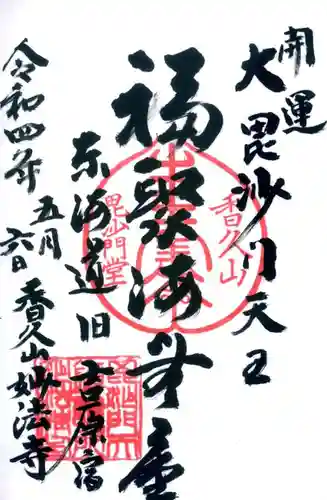 開運
大毘沙門天王
福聚海無量
東海道旧吉原宿
令和四年五月六日
香久山妙法寺
香久山
毘沙門堂